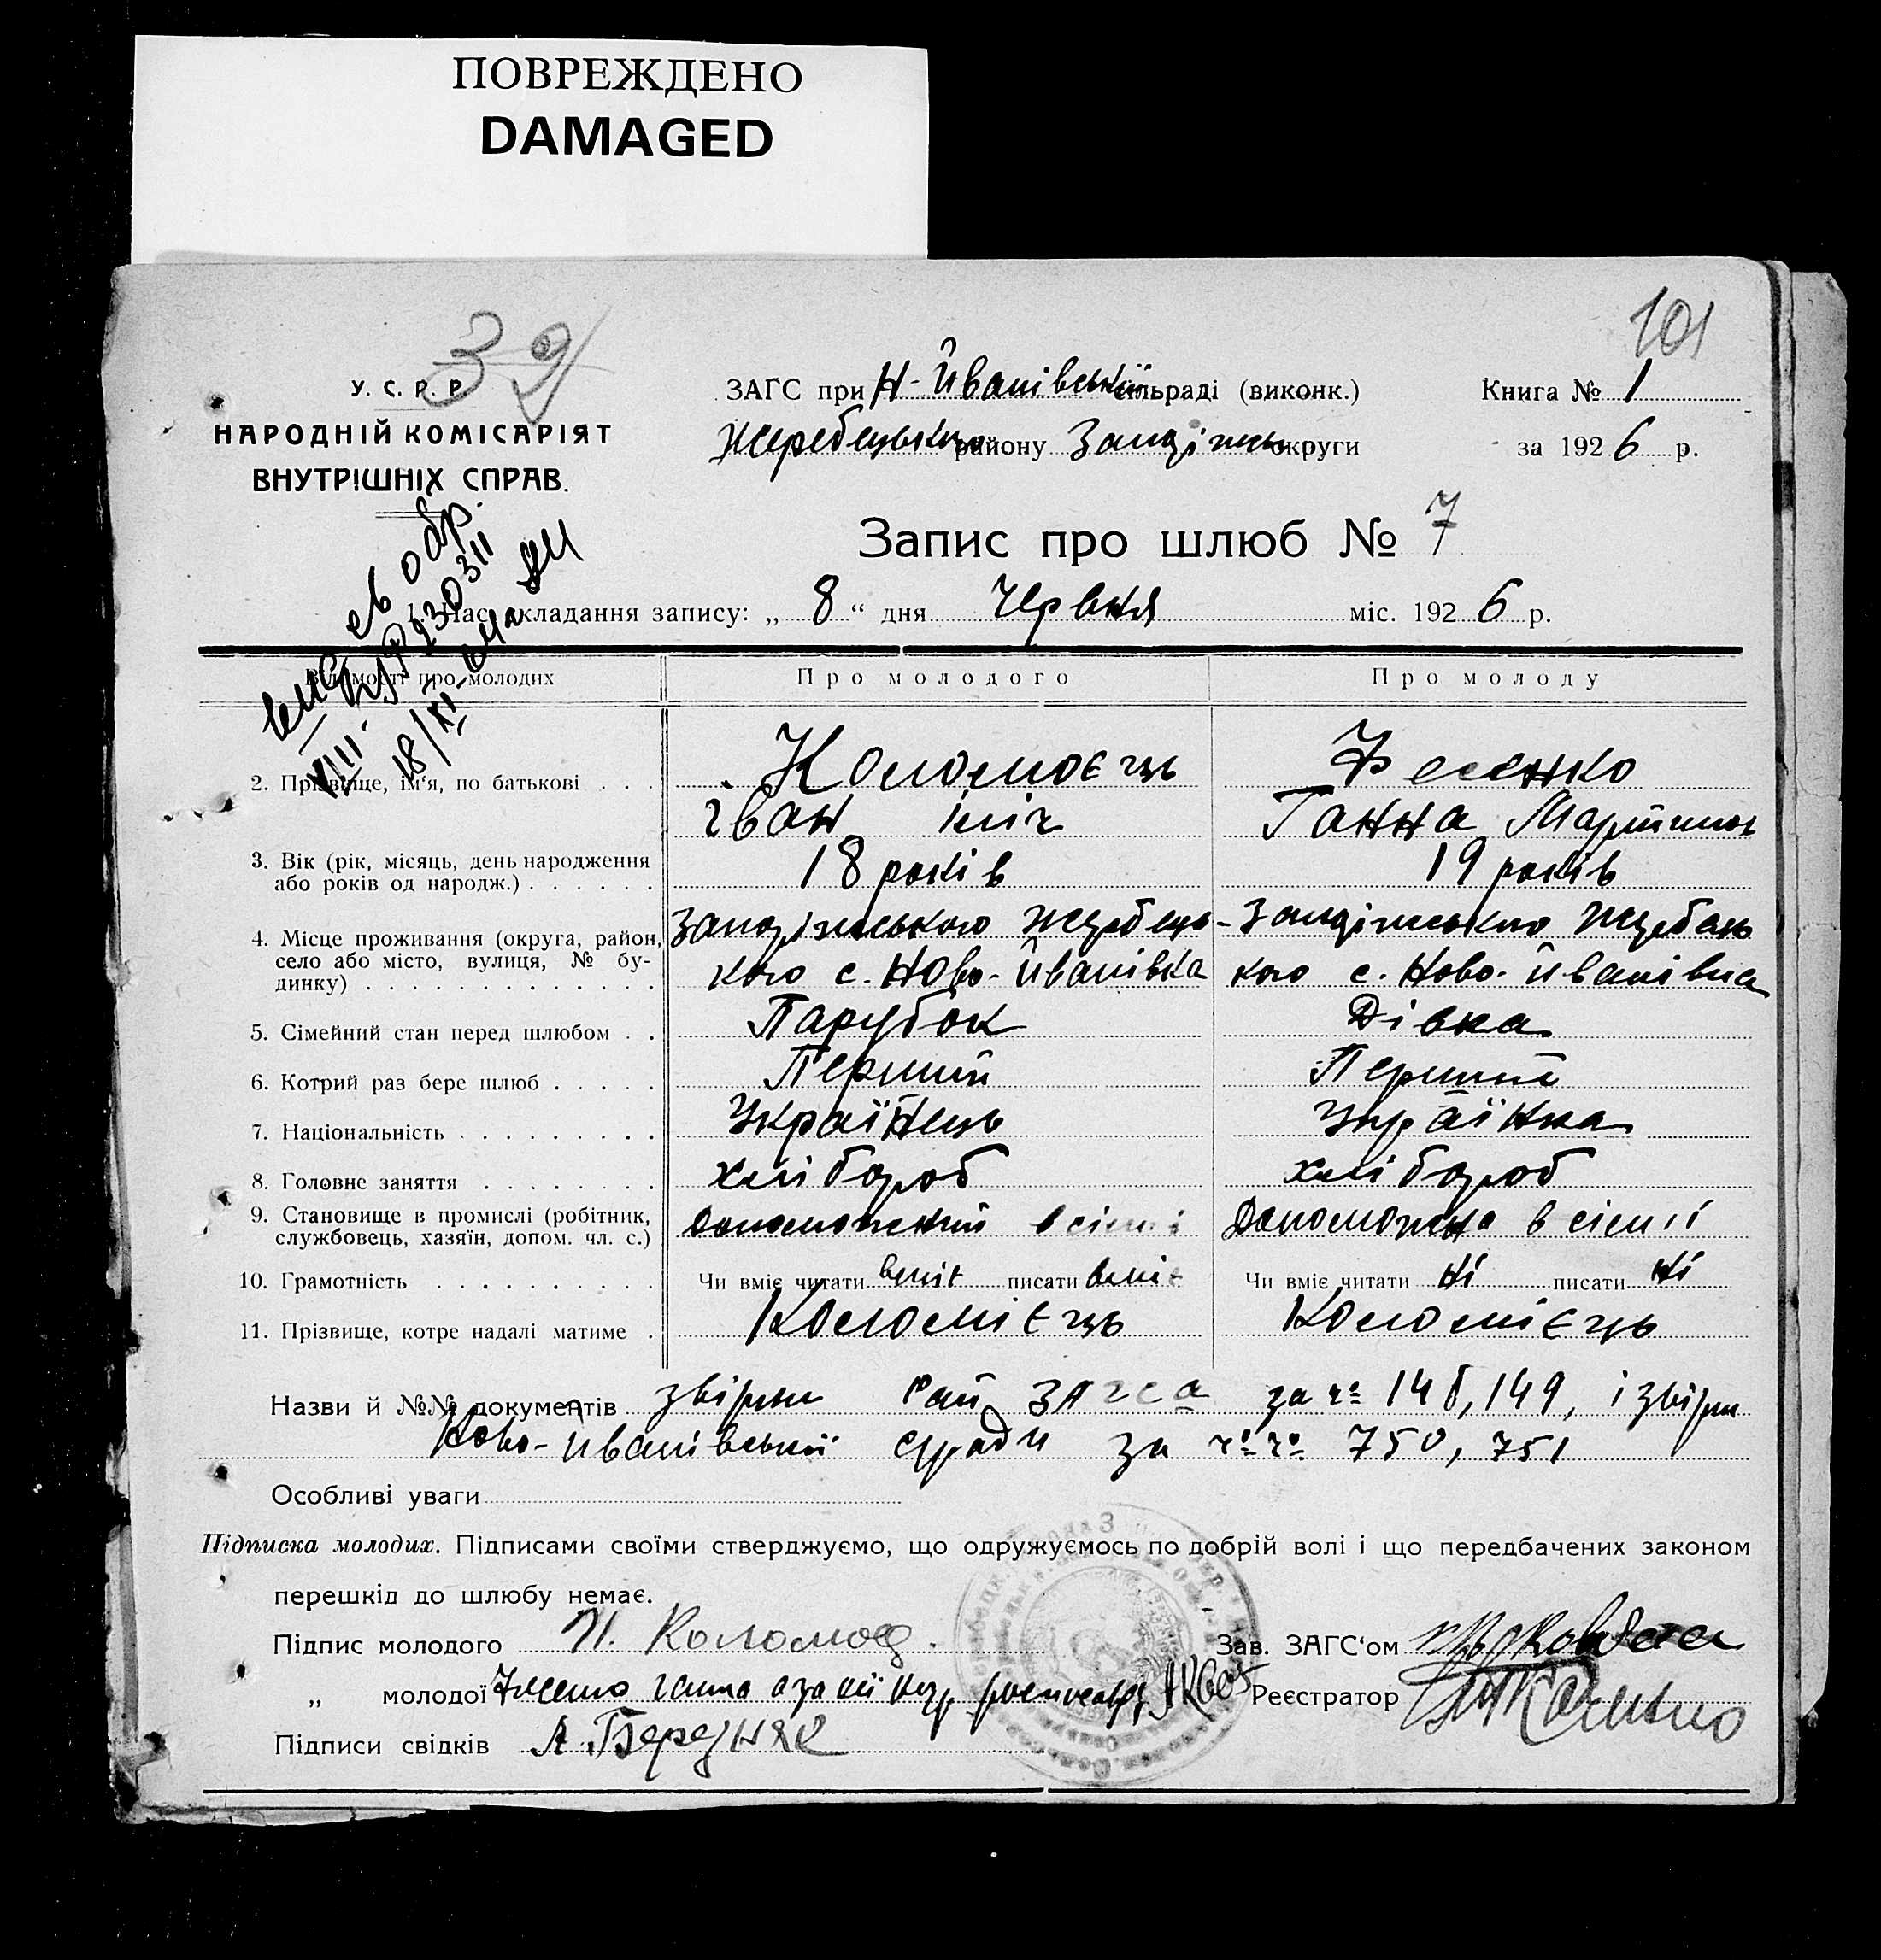 ПОВРЕЖДЕНО
DAMAGED
101
39
У. С. Р. Р.
НАРОДНІЙ КОМІСАРІЯТ
ВНУТРІШНІХ СПРАВ.
ЗАГС при Н-Йванівській сільраді (виконк.) Книга № 1
Жеребецьком району Запоріжськ округи за 1926 р.
Запис про шлюб № 7
1. Час складання запису: „ 8 “ дня Червня міс. 1926 р.
Відомості про молодих Про молодого Про молоду
2. Прізвище, ім'я, по батькові . . . Коломоєць Фесенко
Іван Ілліч Ганна Мартинов
3. Вік (рік, місяць, день народження або років од народж.) . . . . . . 18 років 19 років
4. Місце проживання (округа, район, Запоріжського Жеребець- Запоріжського Жеребець
село або місто, вулиця, № бу- кого с. Ново-Йванівка кого с. Ново-Йванівка
динку) . . . . . . . . . . . . .
5. Сімейний стан перед шлюбом . . Парубок Дівка
6. Котрий раз бере шлюб . . . . . Перший Перший
7. Національність . . . . . . . . . Українець Українка
8. Головне заняття . . . . . . . . хлібороб хлібороб
9. Становище в промислі (робітник, Допоможний в сіми Допоможна в сімії
службовець, хазяїн, допом. чл. с.)
10. Грамотність . . . . . . . . . . Чи вміє читати вміє писати вміє Чи вміє читати ні писати ні
11. Прізвище, котре надалі матиме . Коломієць Коломієць
Назви й №№ документів Рай ЗАГСа за №
Ново-Йванівської за 750, 751
Особливі уваги
Підписка молодих. Підписами своїми стверджуємо, що одружуємось по добрій волі і що передбачених законом
перешкід до шлюбу немає.
Підпис молодого И. Коломоец. Зав. ЗАГС'ом
„ молодої Реєстратор
Підписи свідків А. Березняк